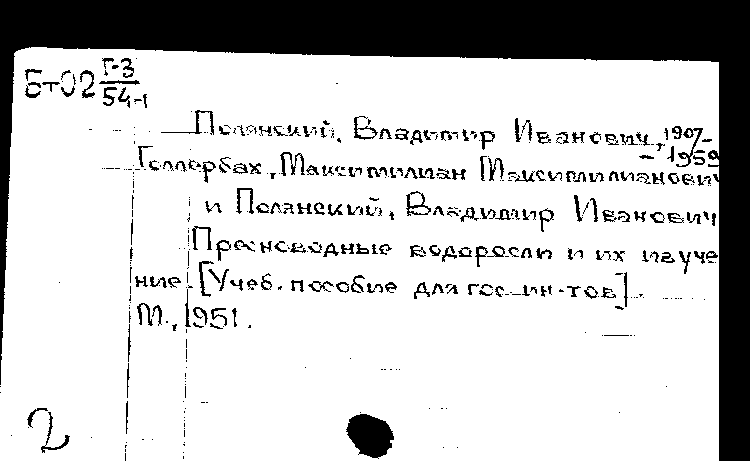 Б-02 Г-3
54-1
Полянский, Владимир Иванович, 1907-
- 1959
Голлербах, Максимилиан Максимилианович
и Полянский, Владимир Иванович
Пресноводные водоросли и их изуче
ние. [Учеб. пособие для гос. ин-тов].
М., 1951.
2